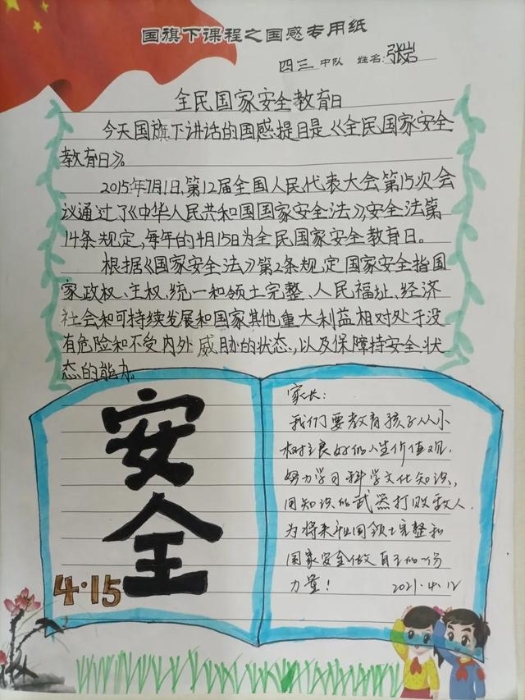 国旗下课程之国感专用纸
四三 中队 姓名:张岩
全民国家安全教育日
今天国旗下讲话的国感提目是《全民国家安全
教育日》。
2015年7月1日,第12届全国人民代表大会第15次会
议通过了《中华人民共和国国家安全法》,安全法第
14条规定,每年的4月15日为全民国家安全教育日。
根据《国家安全法》第2条规定国家安全指国
家政权、主权、统一和领土完整、人民福祉、经济
社会和可持续发展和国家其他重大利益相对处于没
有危险和不受内外威胁的状态,以及保障持安全状
态的能力。
安全
4·15
家长:
我们要教育孩子从小
树立良好的人生价值观,
努力学习科学文化知识,
用知识的武器打败敌人,
为将来祖国领土完整和
国家安全做自己的一份
力量!
2021.4.12